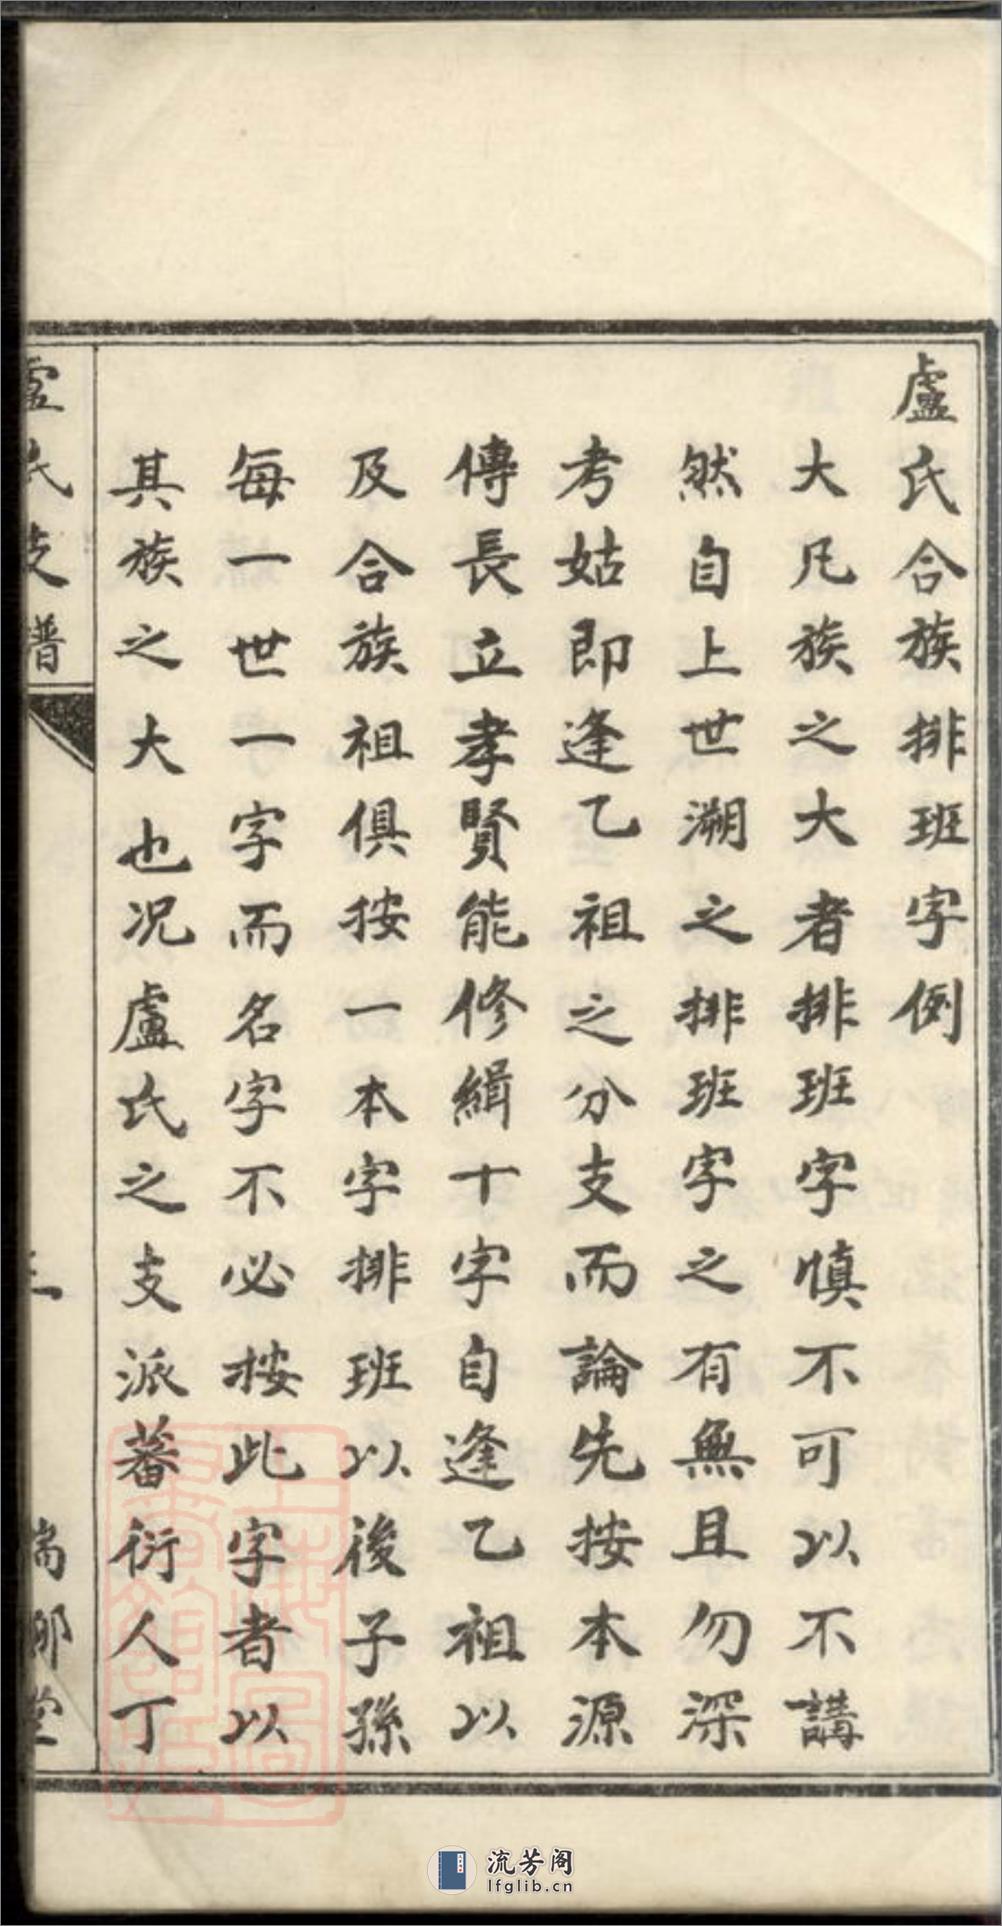 盧氏合族排班字例
大凡族之大大者排班字慎不可以不講
然自上世溯之排班字之有無且勿深
考姑即逢乙祖之分支而論先按本源
傳長立孝賢能修緝十字自逢乙祖以
及合族祖俱按一本字排班以後子孫
每一世一字而名字不必按此字者以
其族之大也况盧氏之支派蕃衍人丁
盧氏支譜
三
堂
流芳阁
lfglib.cn